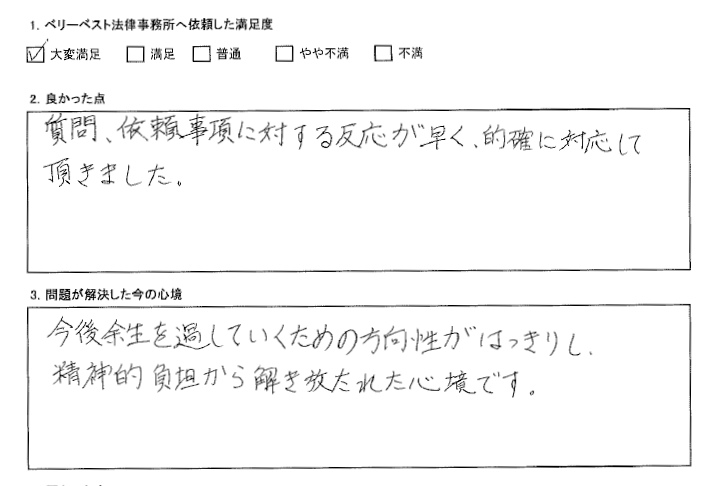 1. ベリーベスト法律事務所へ依頼した満足度
☑ 大変満足 □ 満足 □ 普通 □ やや不満 □ 不満
2. 良かった点
質問、依頼事項に対する反応が早く、的確に対応して
頂きました。
3. 問題が解決した今の心境
今後余生を過していくための方向性がはっきりし、
精神的負担から解き放たれた心境です。